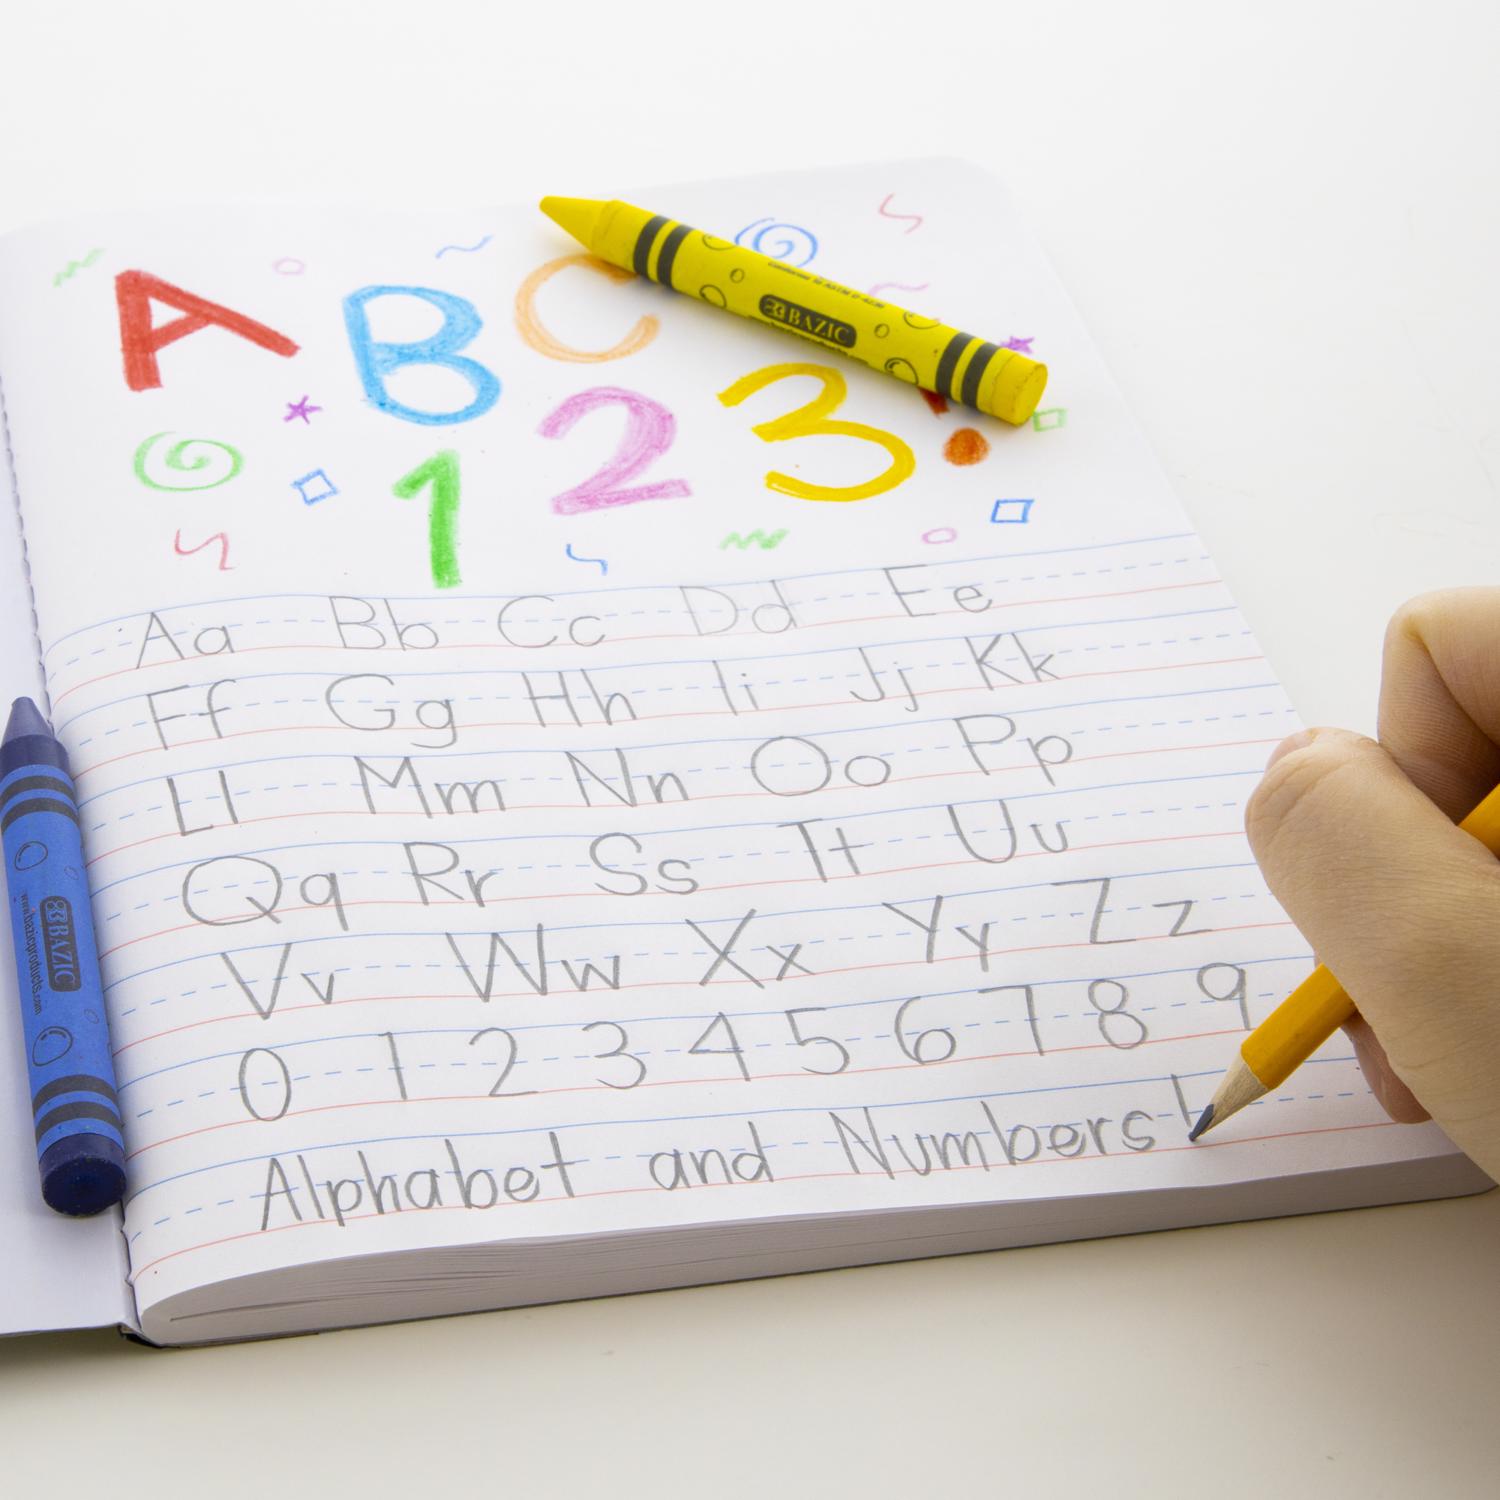 ABC
123!
Aa Bb Cc Dd Ee
Ff Gg Hh Ii Jj Kk
Ll Mm Nn Oo Pp
Qq Rr Ss Tt Uu
Vv Ww Xx Yy Zz
0 1 2 3 4 5 6 7 8 9
Alphabet and Numbers!
BAZIC
BAZIC
www.bazicproducts.com